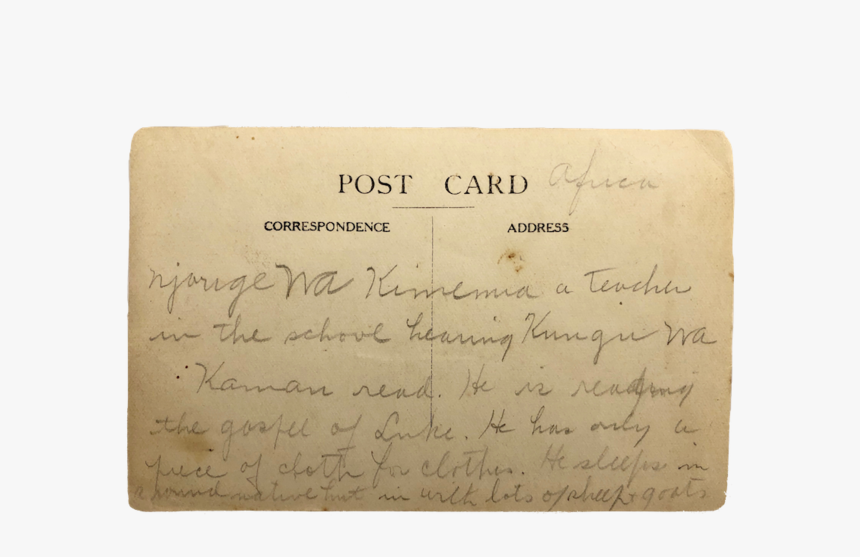 POST CARD Africa
CORRESPONDENCE ADDRESS
Njorige Wa Kimemia a teacher
in the school hearing Kungu Wa
Kamau read. He is reading
the gospel of Luke. He has only a
piece of cloth for clothes. He sleeps in
a round native hut in with lots of sheep & goats